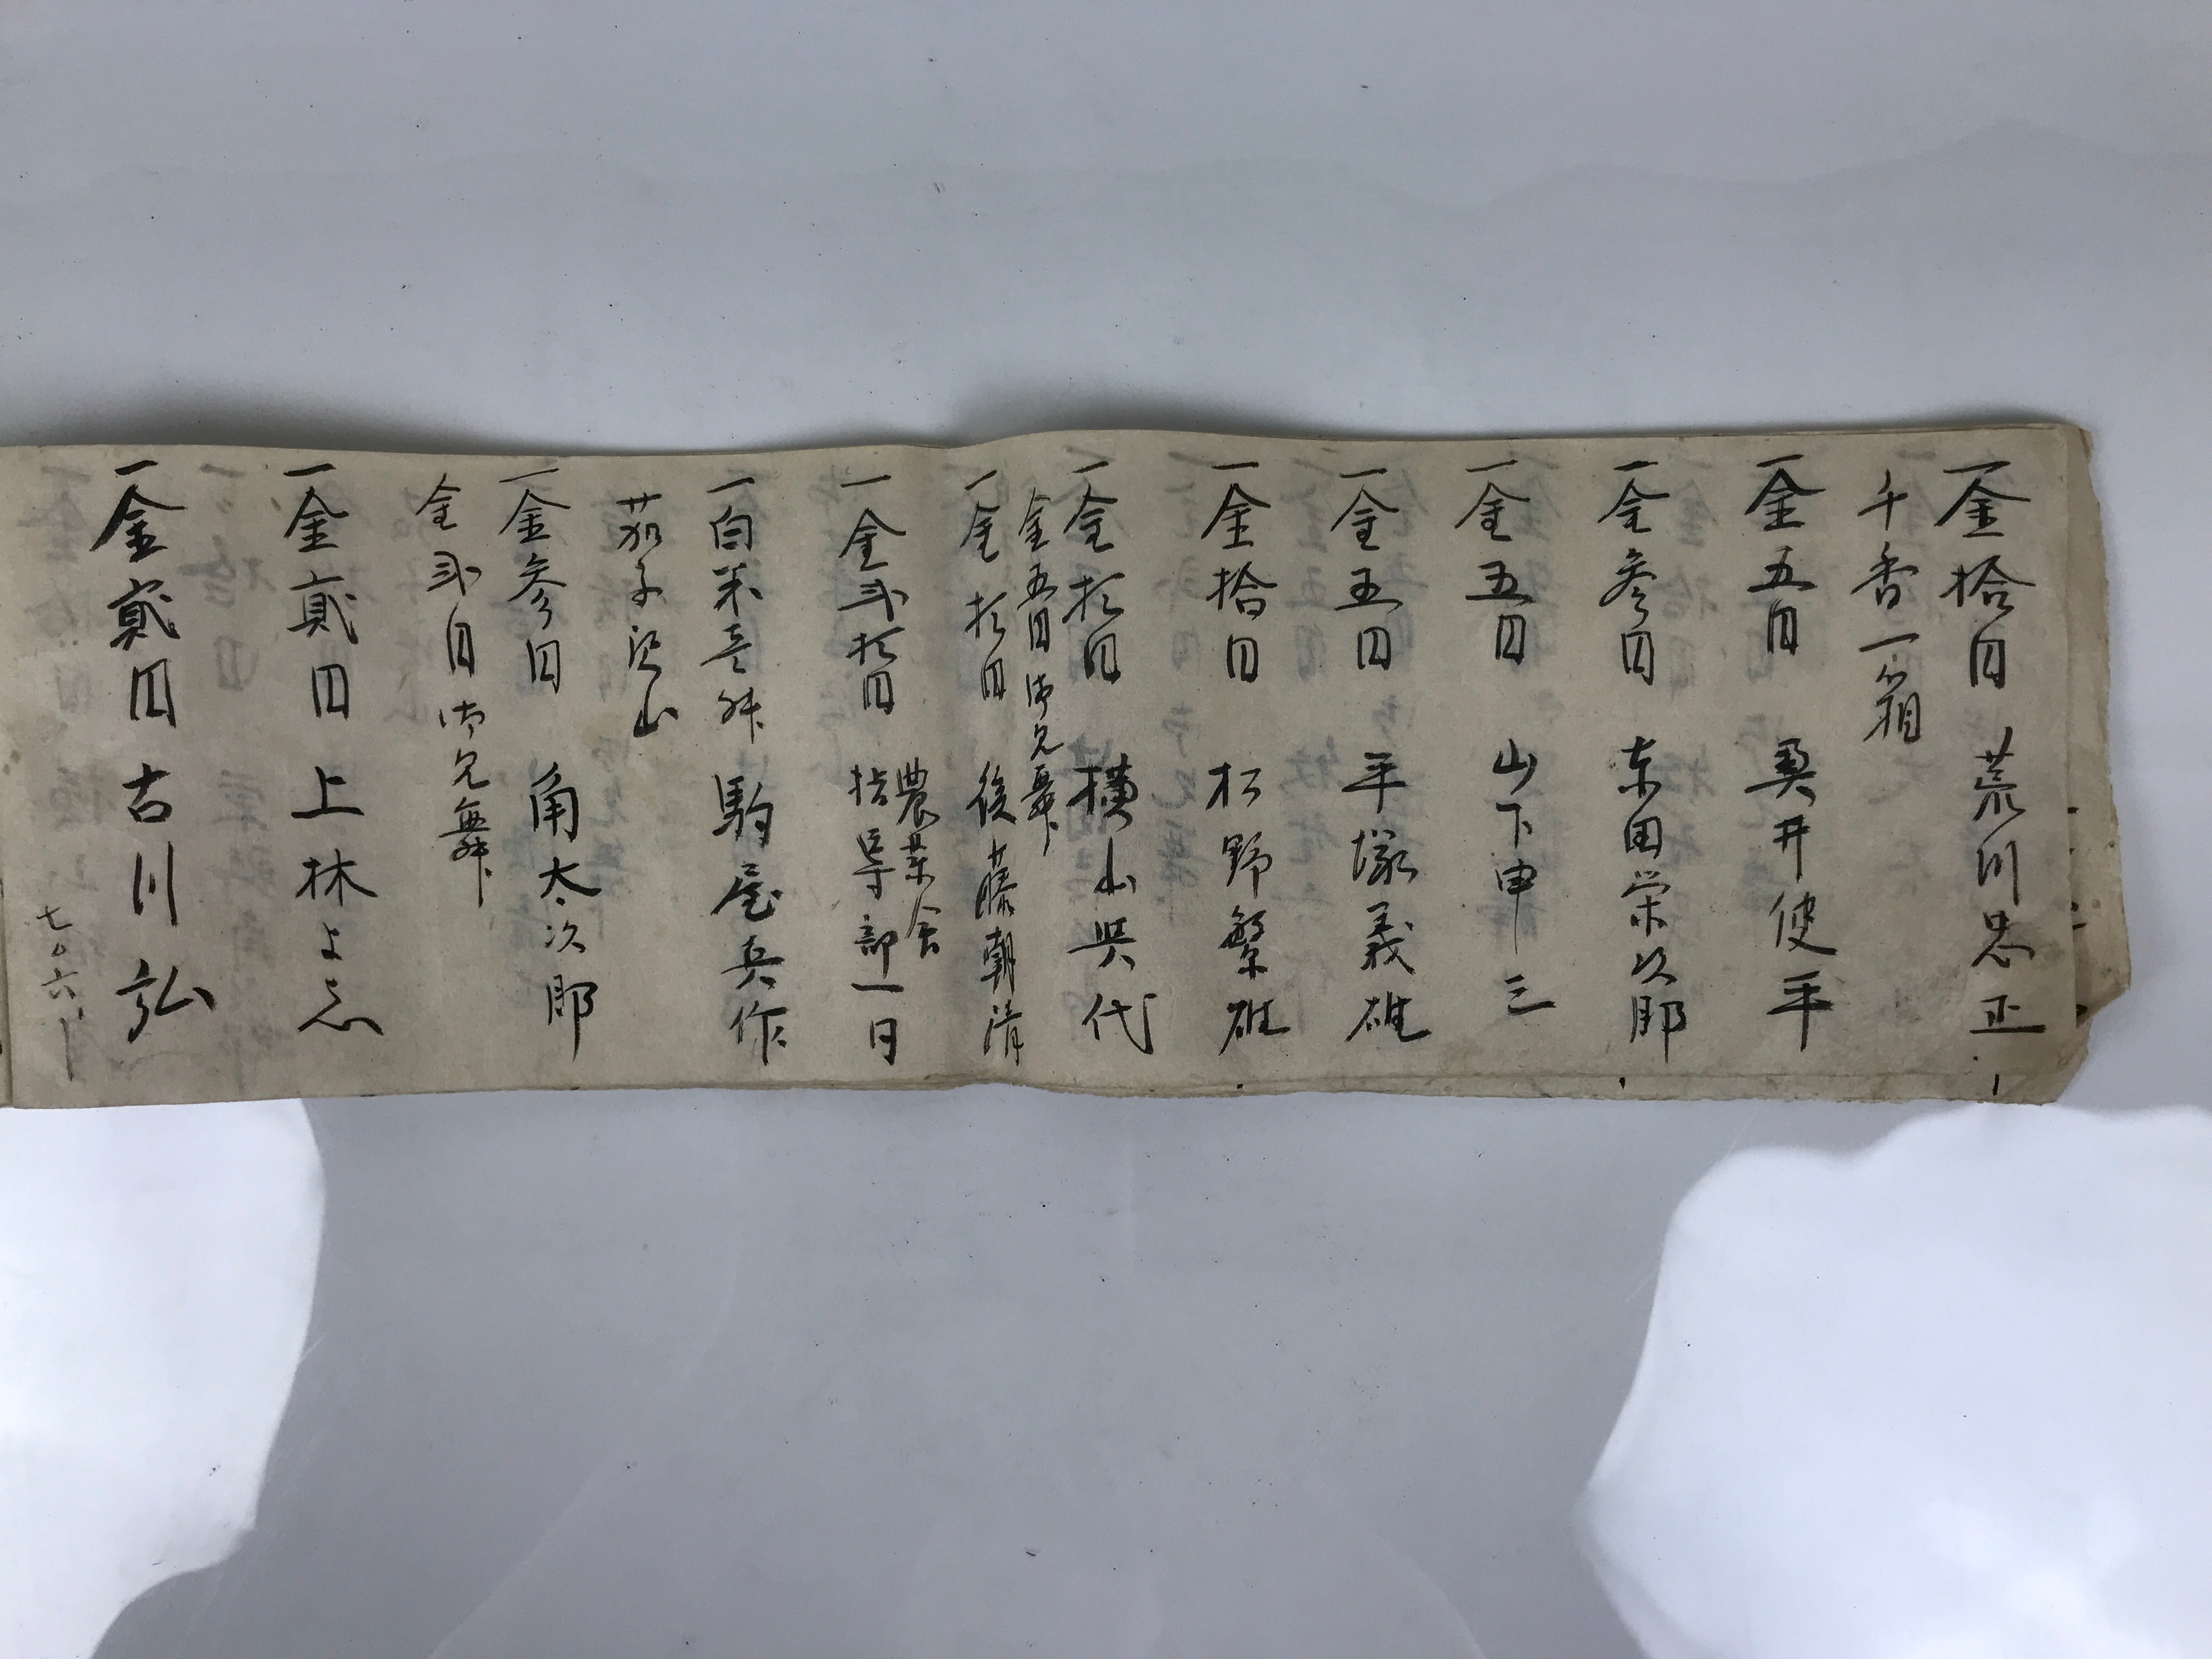 一金拾円 荒川忠正
千香一箱
一金五円 奥井使平
一金参円 东田栄次郎
一金五円 山下申三
一金五円 平塚義雄
一金拾円 松野繁雄
一金拾円 横山與代
金五円 御見舞
一金拾円 後藤朝清
一金弐拾円 農業会指導部一同
一白米壱升 駒屋兵作
茄子沢山
一金参円 角太次郎
金弐円 御見舞
一金貳円 上林よ志
一金貳円 古川弘
七〇六